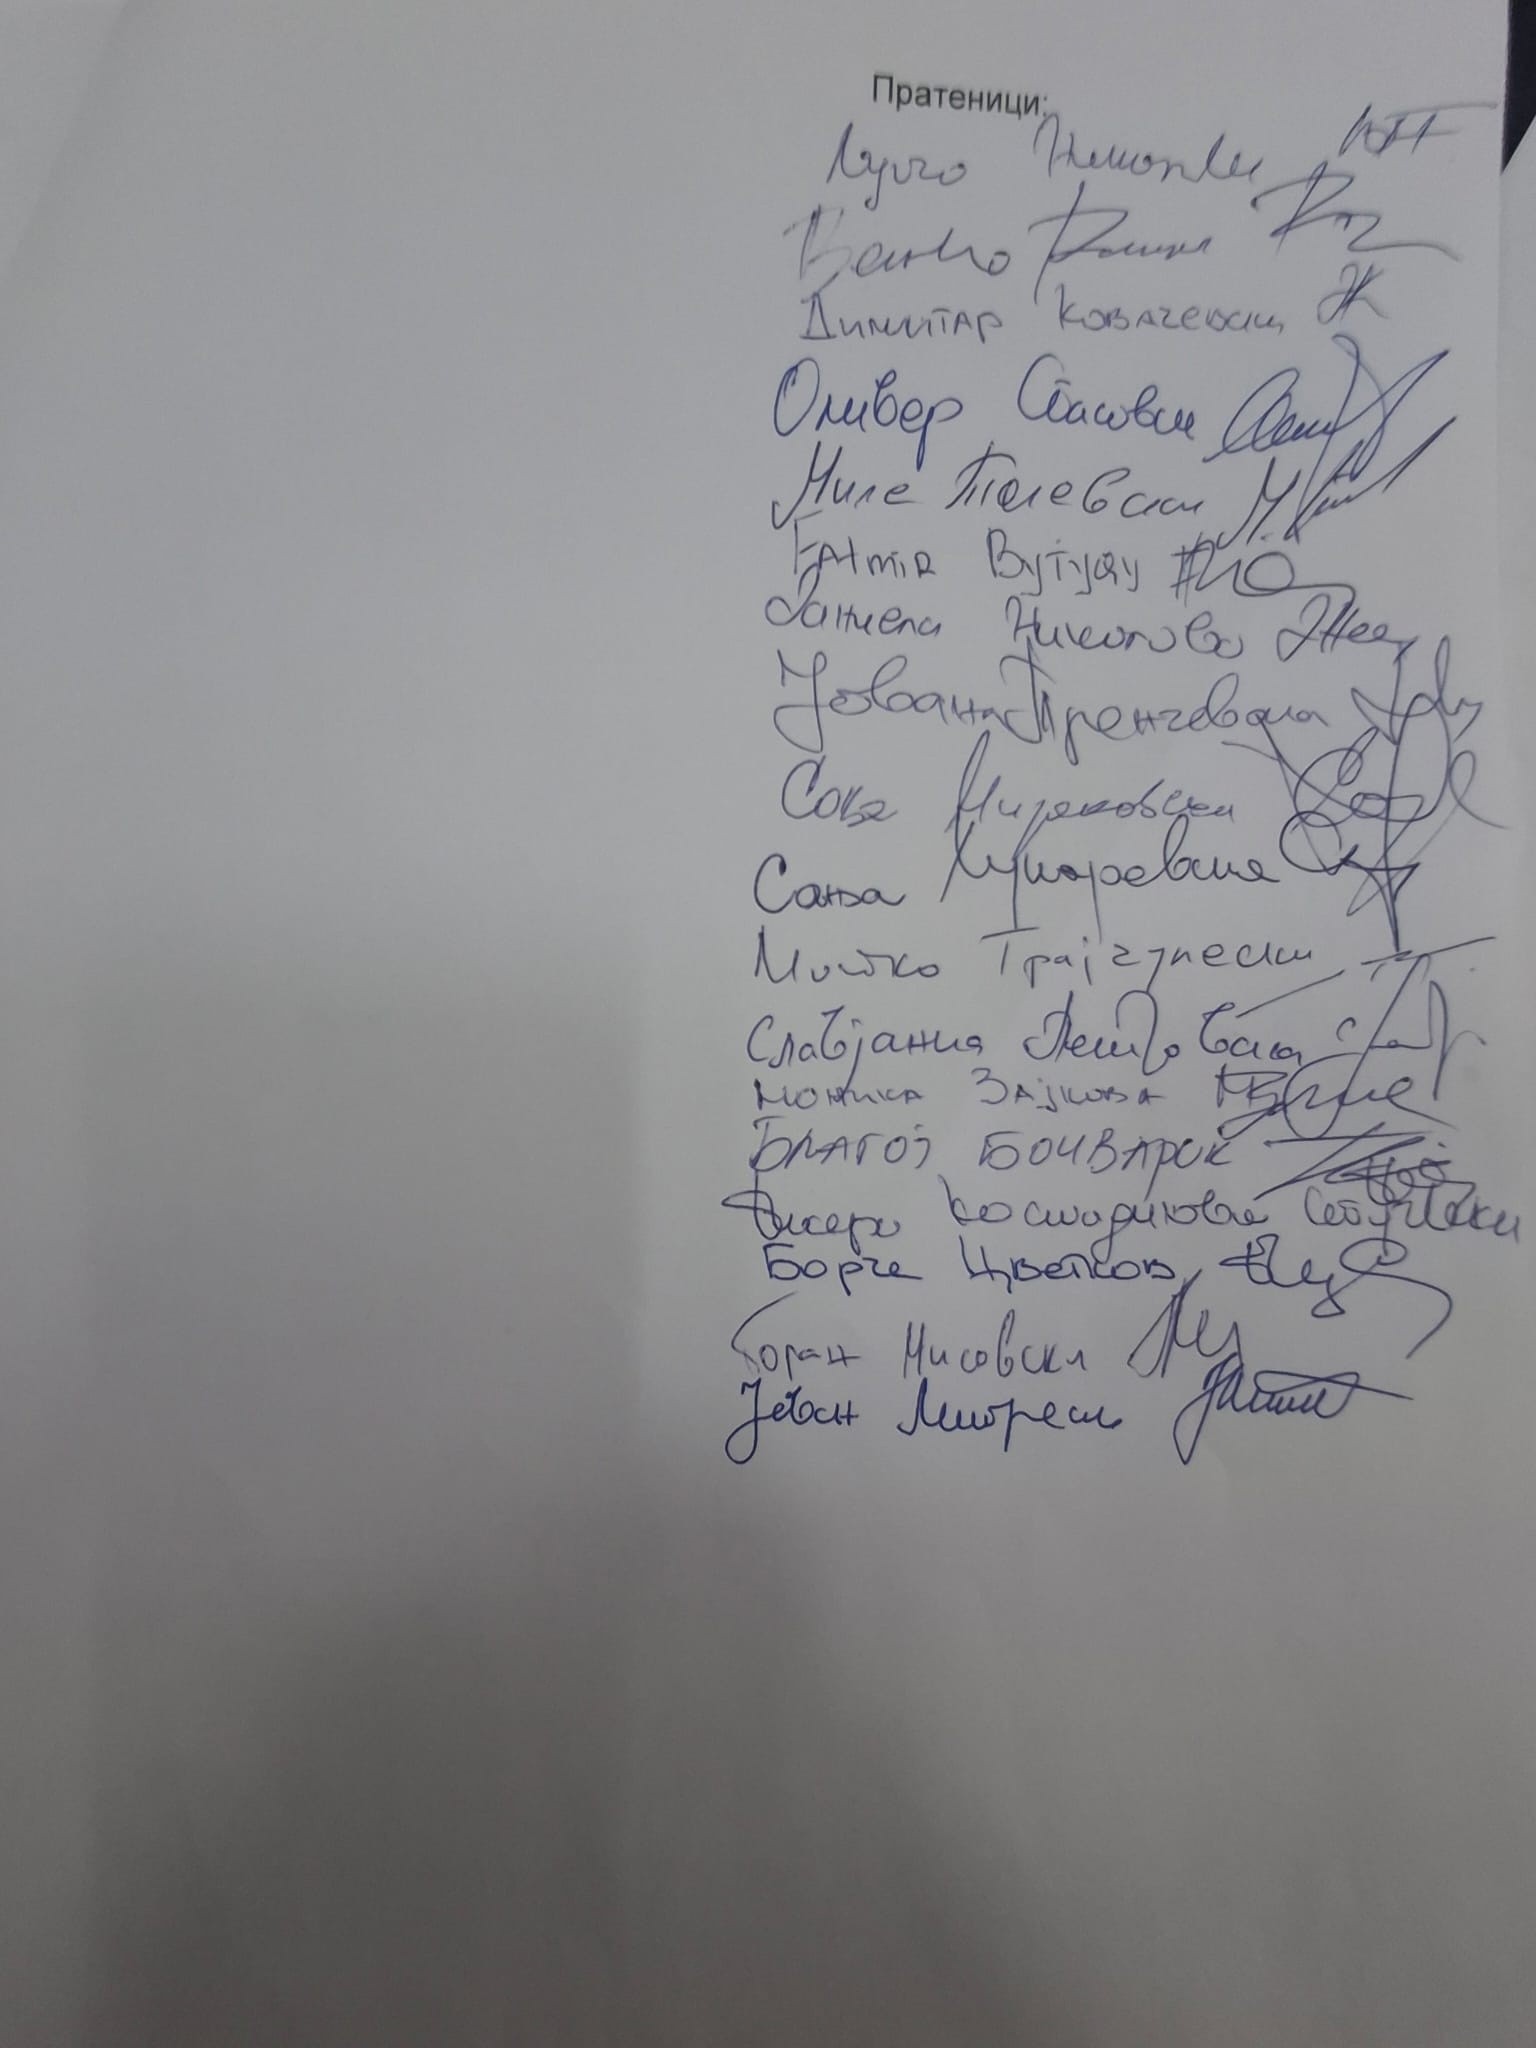 Пратеници:
Лупчо
Венко
Димитар Ковачевски
Оливер Спасовски
Миле Талевски
Fatmir Бутуќу
Даниела Николова
Јована Тренчевска
Соња Мираковска
Сања Лукаревска
Митко Трајчулески
Славјанка Петровска
Моника Зајкова
БЛАГОЈ БОЧВАРСКИ
Космодинова
Борче Цветков
Горан Мисовски
Јован Митрески